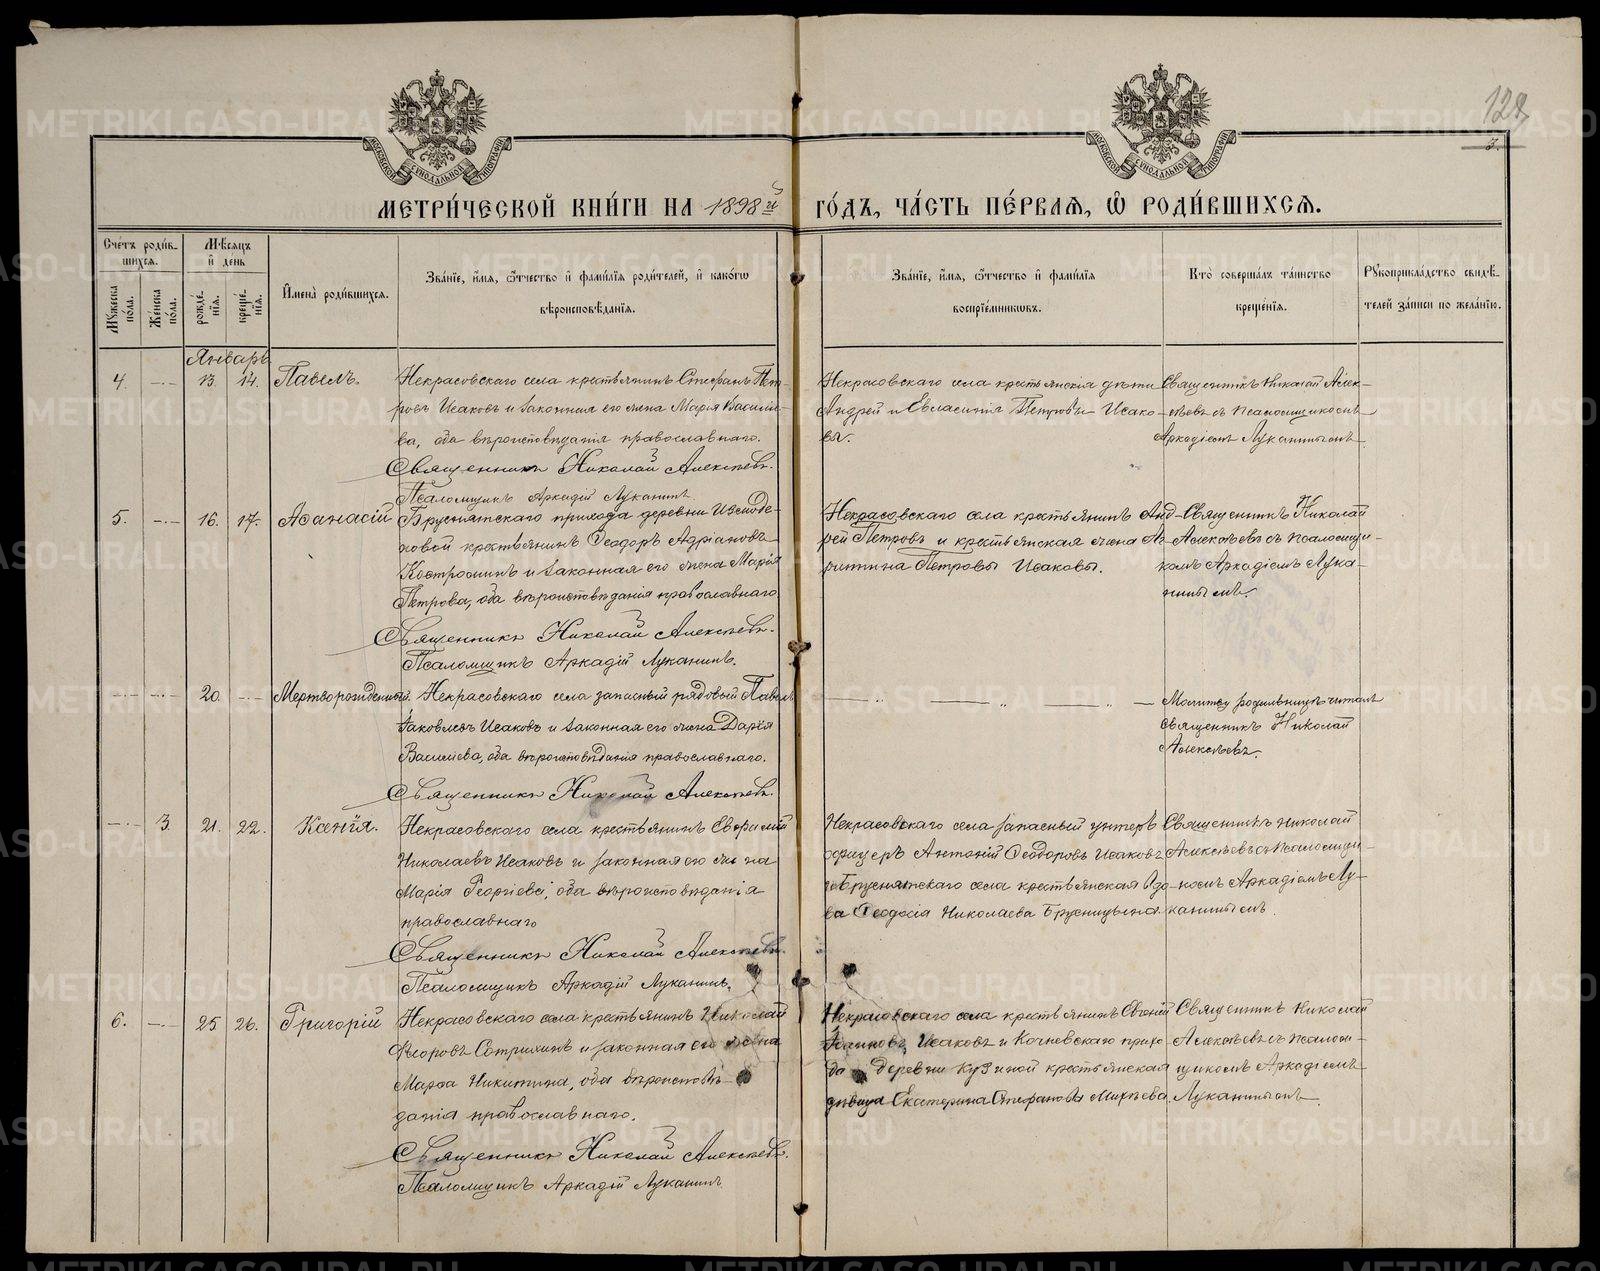 128
3.
МОСКОВСКОЙ СѴНОДАЛЬНОЙ ТИПОГРАФІИ
МОСКОВСКОЙ СѴНОДАЛЬНОЙ ТИПОГРАФІИ
МЕТРИ́ЧЕСКОЙ КНИ́ГИ НА 1898й ГО́ДЪ, ЧА́СТЬ ПЕ́РВАѦ, Ѡ РОДИ́ВШИХСѦ.
Сче́тъ роди́в-
шихсѧ.
Мѣ́сѧцъ
и҆ день
Мꙋ́жеска по́ла.
Же́нска по́ла.
рожде́-
нїѧ.
креще́-
нїѧ.
И҆мена̀ роди́вшихсѧ.
Зва́нїе, и҆́мѧ, ѻ҆́тчество и҆ фами́лїѧ роди́телей, и҆ како́гѡ
вѣроисповѣ́данїѧ.
Зва́нїе, и҆́мѧ, ѻ҆́тчество и҆ фами́лїѧ
воспрїе́мникѡвъ.
Кто̀ соверша́лъ та́инство
креще́нїѧ.
Рꙋкоприкла́дство свидѣ́-
телей за́писи по жела́нїю.
Январь
4. —·— 13. 14. Павелъ.
Некрасовскаго села крестьянинъ Стефанъ Пет-
ровъ Исаковъ и законная его жена Марія Василіе-
ва, оба вѣроисповѣданія православнаго.
Священникъ Николай Алексѣевъ.
Псаломщикъ Аркадій Луканинъ.
Некрасовскаго села крестьянскія дѣти
Андрей и Евласинія Петровы Исако-
вы.
Священникъ Николай Алек-
сѣевъ съ псаломщикомъ
Аркадіемъ Луканинымъ.
5. —·— 16. 17. Аѳанасій
Бруснятскаго прихода деревни Измоде-
новой крестьянинъ Ѳеодоръ Адріановъ
Костроминъ и законная его жена Марія
Петрова, оба вѣроисповѣданія православнаго
Священникъ Николай Алексѣевъ.
Псаломщикъ Аркадій Луканинъ.
Некрасовскаго села крестьянинъ Анд-
рей Петровъ и крестьянская жена
Петровы Исаковы.
Священникъ Николай
Алексѣевъ съ псаломщи-
комъ Аркадіемъ Лука-
нинымъ.
—·— —·— 20. —·— Мертворожденный.
Некрасовскаго села запасный рядовый Павелъ
Іаковлевъ Исаковъ и законная его жена Дарія
Василіева, оба вѣроисповѣданія православнаго.
Священникъ Николай Алексѣевъ.
— " — " — " —
Молитву родильницѣ читалъ
священникъ Николай
Алексѣевъ.
—·— 3. 21. 22. Ксенія.
Некрасовскаго села крестьянинъ Евфимій
Николаевъ Исаковъ и законная его жена
Марія Георгіева, оба вѣроисповѣданія
православнаго
Священникъ Николай Алексѣевъ.
Псаломщикъ Аркадій Луканинъ.
Некрасовскаго села запасный унтеръ
офицеръ Антоній Ѳеодоровъ Исаковъ
и Бруснятскаго села крестьянская вдо-
ва Ѳеодосія Николаева Брусницына.
Священникъ Николай
Алексѣевъ съ псаломщи-
комъ Аркадіемъ Лу-
канинымъ.
6. —·— 25 26. Григорій
Некрасовскаго села крестьянинъ Николай
Ѳеоровъ Сотринъ и законная его жена
Марѳа Никитина, оба вѣроисповѣ-
данія православнаго.
Священникъ Николай Алексѣевъ.
Псаломщикъ Аркадій Луканинъ
Некрасовскаго села крестьянинъ Евгеній
Іоанновъ Исаковъ и Кочневскаго прихо-
да деревни Кузиной крестьянская
дѣвица Екатерина Стефанова Михѣева.
Священникъ Николай
Алексѣевъ съ псалом-
щикомъ Аркадіемъ
Луканинымъ.
METRIKI.GASO-URAL.RU